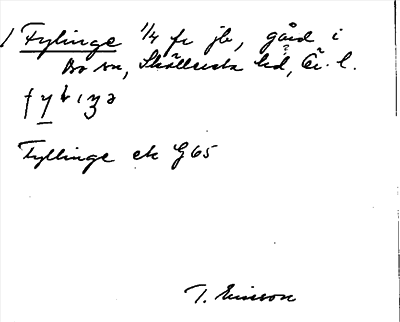 Fylinge 1/4 fr jb, gård i
Bo sn, Skyllersta hd, Ör. l.
Fyllinge ek G65
T. Ericsson